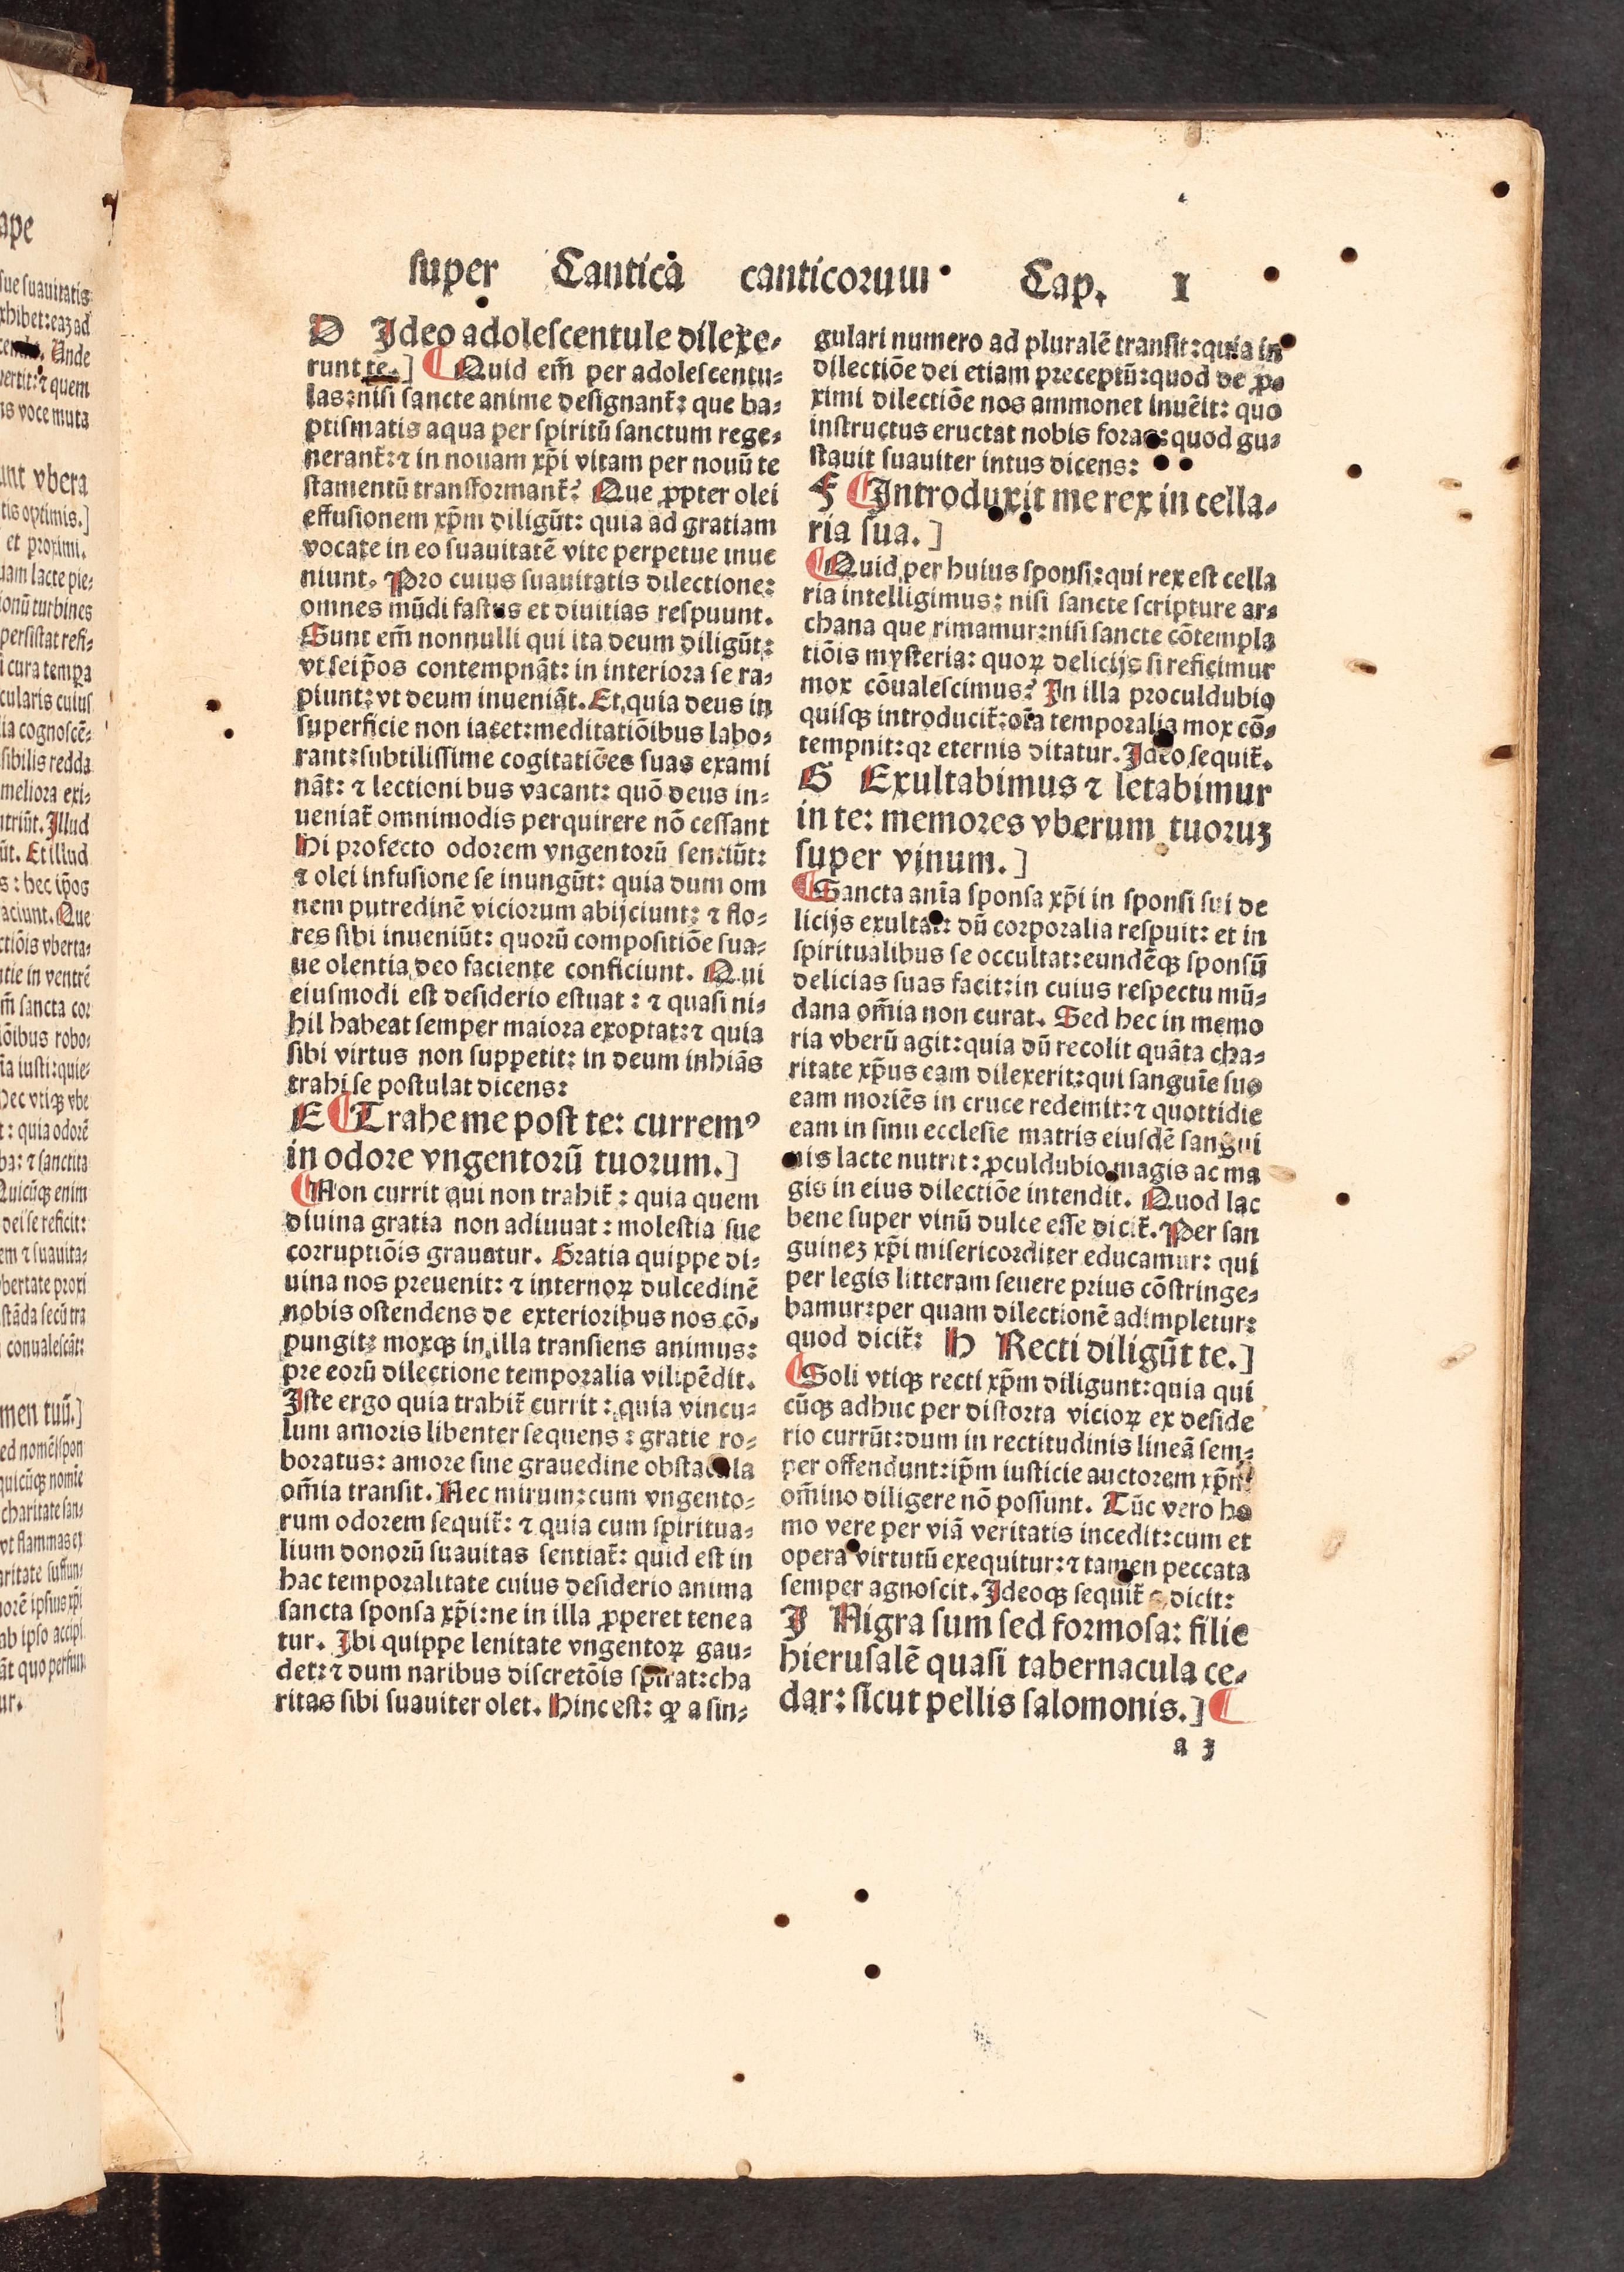 super Cantica canticorum. Cap. I
D Ideo adolescentule dilexe-
runt te.] ¶ Quid em̃ per adolescentu-
las: nisi sancte anime designant̃: que ba-
ptismatis aqua per spiritū sanctum rege-
nerant̃: ⁊ in nouam xp̃i vitam per nouū te
stamentū transformant̃? Que ꝓpter olei
effusionem xp̃m diligūt: quia ad gratiam
vocate in eo suauitatē vite perpetue inue
niunt. Pro cuius suauitatis dilectione:
omnes mūdi fastus et diuitias respuunt.
Sunt em̃ nonnulli qui ita deum diligūt:
vt seip̃os contempnāt: in interiora se ra-
piunt: vt deum inueniāt. Et quia deus in
superficie non iacet: meditatiōibus labo-
rant: subtilissime cogitatiōes suas exami
nāt: ⁊ lectionibus vacant: quō deus in-
ueniat̃ omnimodis perquirere nō cessant
Hi profecto odorem vngentorū senciūt:
⁊ olei infusione se inungūt: quia dum om
nem putredinē viciorum abijciunt: ⁊ flo-
res sibi inueniūt: quorū compositiōe sua-
ue olentia deo faciente conficiunt. Qui
eiusmodi est desiderio estuat: ⁊ quasi ni-
hil habeat semper maiora exoptat: ⁊ quia
sibi virtus non suppetit: in deum inhiās
trahi se postulat dicens:
E ¶ Trahe me post te: currem⁹
in odore vngentorū tuorum.]
¶ Non currit qui non trahit̃: quia quem
diuina gratia non adiuuat: molestia sue
corruptiōis grauatur. Gratia quippe di-
uina nos preuenit: ⁊ internoꝝ dulcedinē
nobis ostendens de exterioribus nos cō-
pungit: moxqꝫ in illa transiens animus:
pre eorū dilectione temporalia vilipēdit.
Iste ergo quia trahit̃ currit: quia vincu-
lum amoris libenter sequens: gratie ro-
boratus: amore sine grauedine obstacula
om̃ia transit. Nec mirum: cum vngento-
rum odorem sequit̃: ⁊ quia cum spiritua-
lium donorū suauitas sentiat̃: quid est in
hac temporalitate cuius desiderio anima
sancta sponsa xp̃i: ne in illa ꝓperet tenea
tur. Ibi quippe lenitate vngentoꝝ gau-
det: ⁊ dum naribus discretōis spirat: cha
ritas sibi suauiter olet. Hinc est: ꝙ a sin-
gulari numero ad pluralē transit: quia in
dilectiōe dei etiam preceptū: quod de ꝓ-
ximi dilectiōe nos ammonet inuēit: quo
instructus eructat nobis foras: quod gu-
stauit suauiter intus dicens:
F ¶ Introduxit me rex in cella-
ria sua.]
¶ Quid per huius sponsi: qui rex est cella
ria intelligimus: nisi sancte scripture ar-
chana que rimamur: nisi sancte cōtempla
tiōis mysteria: quoꝝ delicijs si reficimur
mox cōualescimus? In illa proculdubio
quisqꝫ introducit̃: oīa temporalia mox cō-
tempnit: qꝛ eternis ditatur. Ideo sequit̃.
G Exultabimus ⁊ letabimur
in te: memores vberum tuoruꝫ
super vinum.]
¶ Sancta anīa sponsa xp̃i in sponsi sui de
licijs exultat: dū corporalia respuit: et in
spiritualibus se occultat: eundēqꝫ sponsū
delicias suas facit: in cuius respectu mū-
dana om̃ia non curat. Sed hec in memo
ria vberū agit: quia dū recolit quāta cha-
ritate xp̃us eam dilexerit: qui sanguīe suo
eam moriēs in cruce redemit: ⁊ quottidie
eam in sinu ecclesie matris eiusdē sangui
nis lacte nutrit: ꝓculdubio magis ac ma
gis in eius dilectiōe intendit. Quod lac
bene super vinū dulce esse dicit̃. Per san
guineꝫ xp̃i misericorditer educamur: qui
per legis litteram seuere prius cōstringe-
bamur: per quam dilectionē adimpletur:
quod dicit̃: H Recti diligūt te.]
¶ Soli vtiqꝫ recti xp̃m diligunt: quia qui
cūqꝫ adhuc per distorta vicioꝝ ex deside
rio currūt: dum in rectitudinis lineā sem-
per offendunt: ip̃m iusticie auctorem xp̃m
om̃ino diligere nō possunt. Tūc vero ho
mo vere per viā veritatis incedit: cum et
opera virtutū exequitur: ⁊ tamen peccata
semper agnoscit. Ideoqꝫ sequit̃ dicit:
I Nigra sum sed formosa: filie
hierusalē quasi tabernacula ce-
dar: sicut pellis salomonis.] ¶
a 3